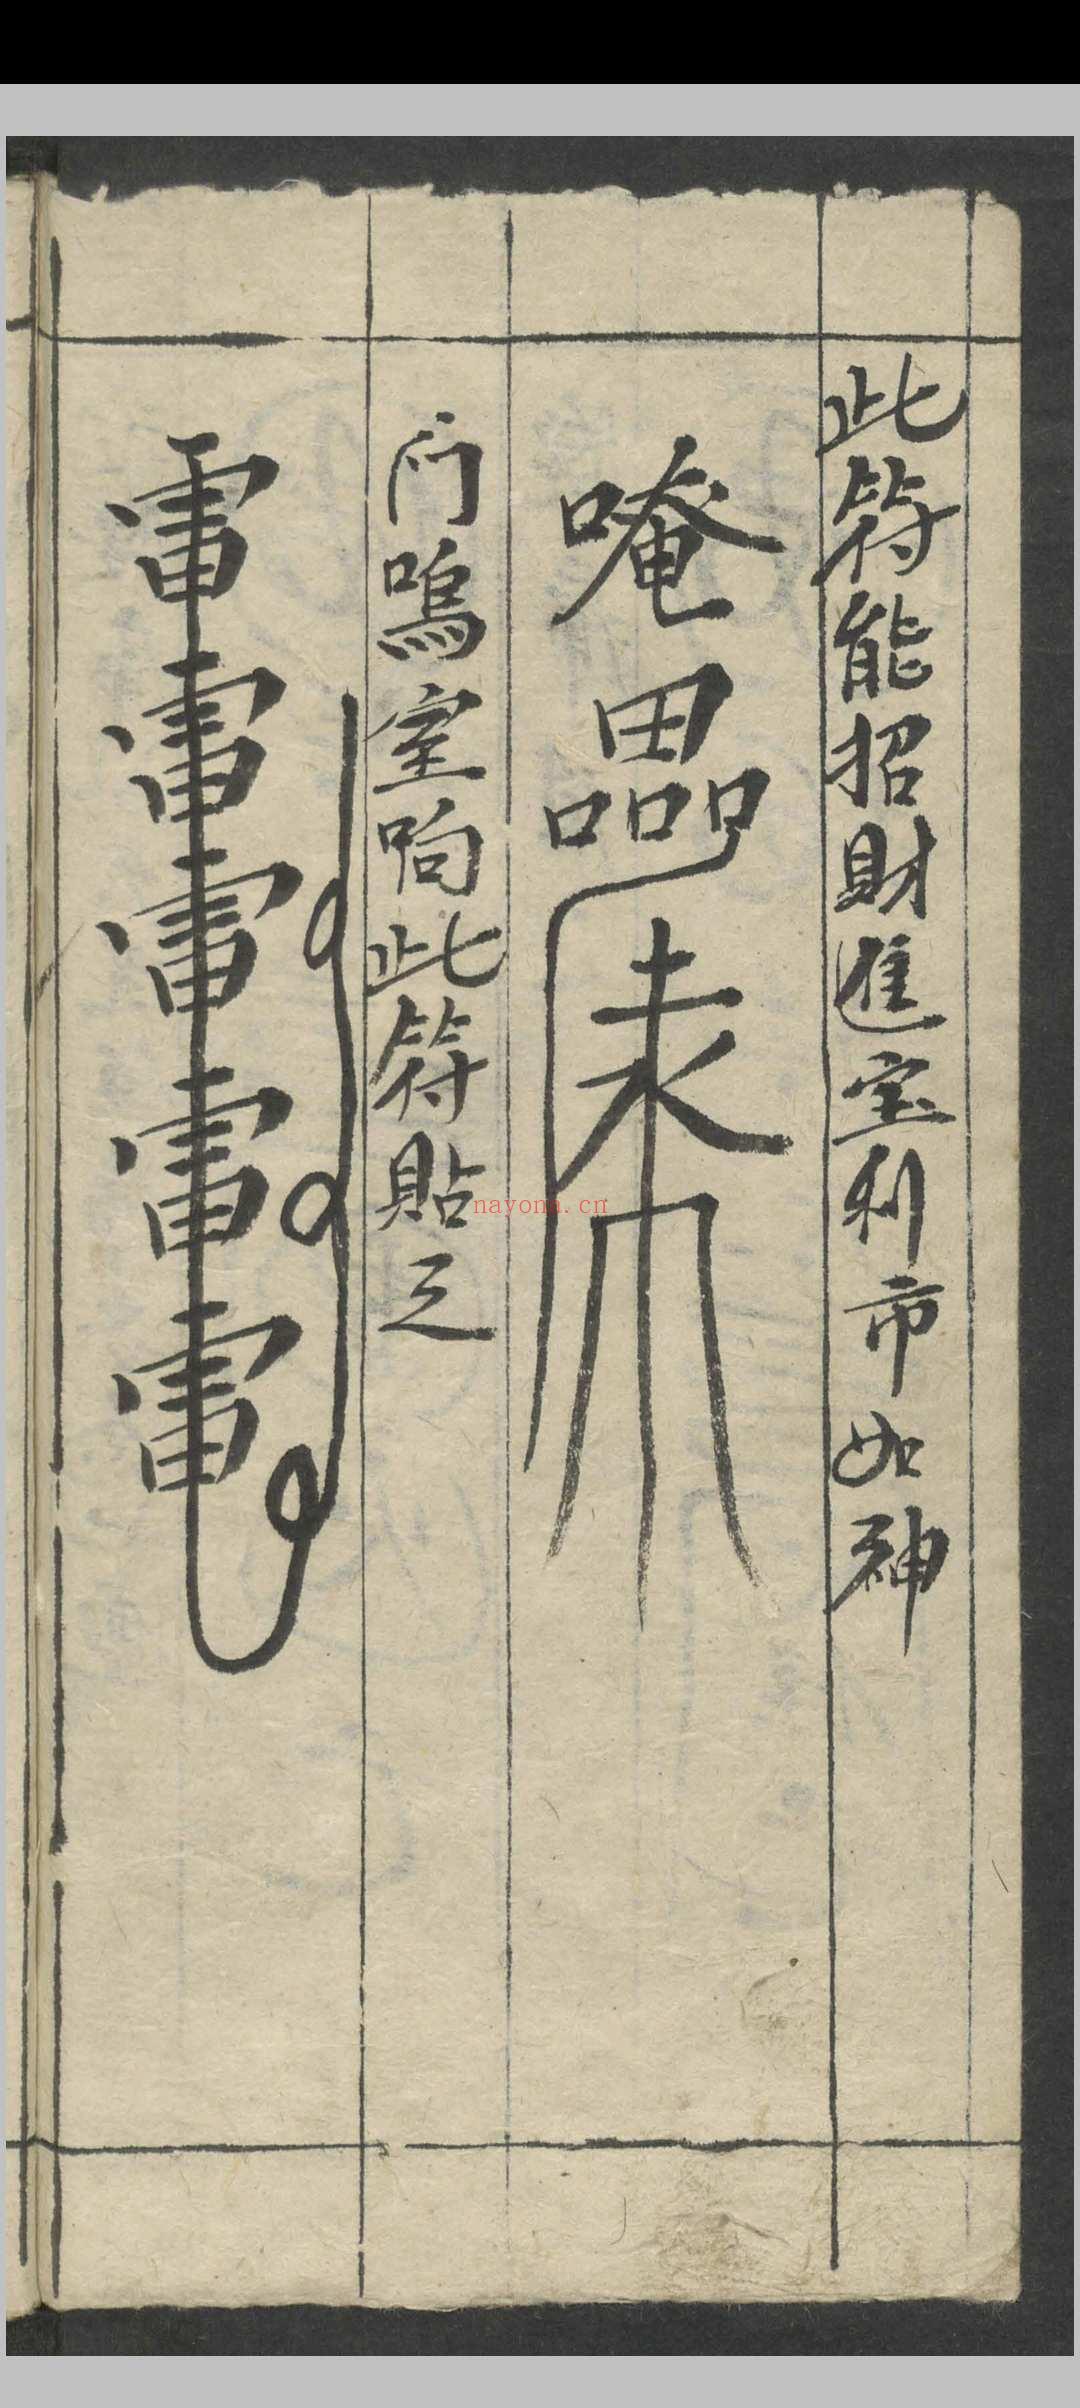 此符能招財進宝利市如神
唵
门鳴室响此符貼之
雷雷雷雷雷
nayona.cn